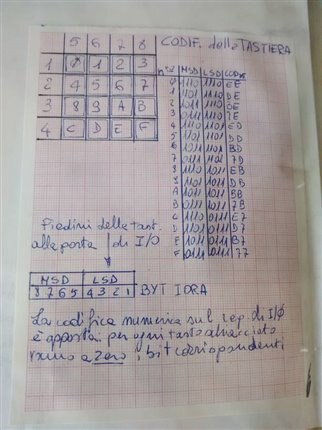 CODIF. delle TASTIERA
5 6 7 8
1 Ø 1 2 3
2 4 5 6 7
3 8 9 A B
4 C D E F
MSD LSD CODE
0 1110 1110 EE
1 1101 1110 DE
2 1011 1110 BE
3 0111 1110 7E
4 1110 1101 ED
5 1101 1101 DD
6 1011 1101 BD
7 0111 1101 7D
8 1110 1011 EB
9 1101 1011 DB
A 1011 1011 BB
B 0111 1011 7B
C 1110 0111 E7
D 1101 0111 D7
E 1011 0111 B7
F 0111 0111 77
Piedini della tast.
alla porta di I/O
MSD LSD
8 7 6 5 4 3 2 1 BYT IORA
La codifica numerica sul rep. di I/Ø
è apposta: per ogni tasto schiacciato
vanno a zero i bit corrispondenti